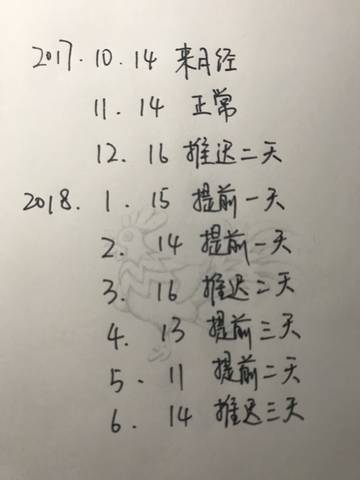 2017.10.14 来月经
11.14 正常
12.16 推迟二天
2018.1.15 提前一天
2.14 提前一天
3.16 推迟二天
4.13 提前三天
5.11 提前二天
6.14 推迟三天